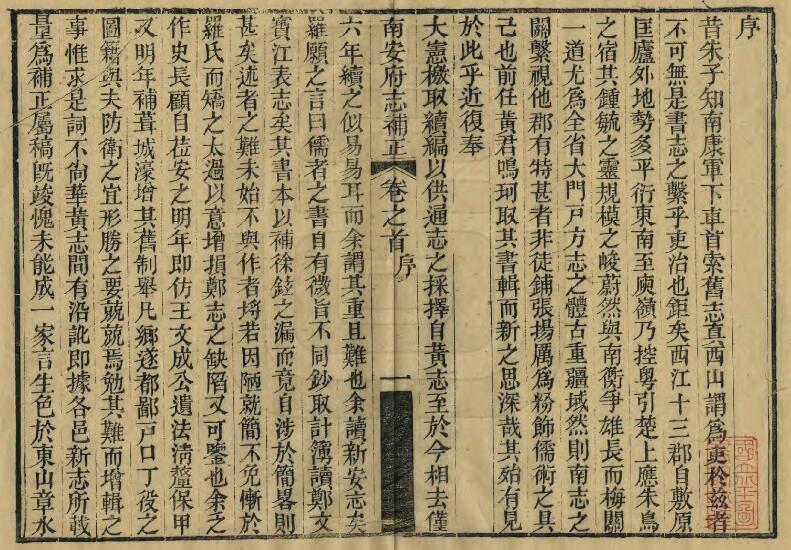 序
昔朱子知南康軍下車首索舊志真西山謂爲吏於兹者
不可無是書志之繫乎吏治也鉅矣西江十三郡自敷原
匡廬外地勢多平衍東南至庾嶺乃控粤引楚上應朱鳥
之宿其鍾毓之靈規模之峻蔚然與南衡爭雄長而梅關
一道尤爲全省大門戸方志之體古重疆域然則南志之
關繫視他郡有特甚者非徒鋪張揚厲爲粉飾儒術之具
己也前任黃君鳴珂取其書輯而新之思深哉其殆有見
於此乎近復奉
大憲檄取續編以供通志之採擇自黃志至於今相去僅
南安府志補正
卷之首序
一
六年續之似易易耳而余謂其重且難也余讀新安志矣
羅願之言曰儒者之書自有微旨不同鈔取計簿讀鄭文
寶江表志矣其書本以補徐鉉之漏而竟自涉於簡畧則
甚矣述者之難未始不與作者埒若因陋就簡不免慚於
羅氏而矯之太過以意增損鄭志之缺陷又可鑒也余之
作史長顧自莅安之明年即仿王文成公遺法清釐保甲
又明年補葺城濠增其舊制舉凡鄉遂都鄙戸口丁役之
圖籍與夫防衛之宜形勝之要兢兢焉勉其難而增輯之
事惟求是詞不尙華黃志間有沿訛即據各邑新志所載
量爲補正屬稿旣竣愧未能成一家言生色於東山章水